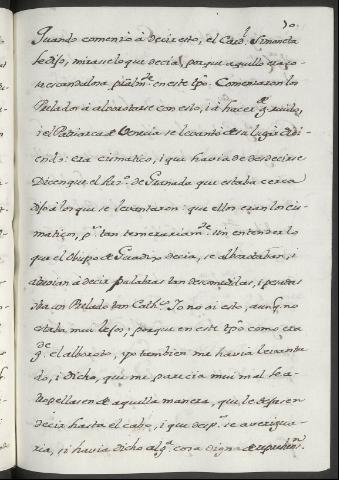 70.
Quando comenzò à decir esto, el Card.l Simoneta
le dijo, mirase lo que decia, porque aquello era co-
sa escandalosa p.ralm.te en este tp.o Comenzaron los
Prelados à alborotarse con esto, i à hacer g.de ruido,
i el Patriarca de Venecia se levantò de su lugar di-
endo: era cismatico, i que havia de desdecirse
Dicen que el Arz.o de Granada que estaba cerca
dijo à los que se levantaron: que ellos eran los cis-
maticos, p.s tan temerariam.te sin entender lo
que el Obispo de Guadix decia, se alborotaban, i
à decir palabras tan descomedidas, i pesadas
à un Prelado tan Cath.co Io no oi esto, aunq. no
estaba mui lejos; porque en este tp.o como era
g.de el alboroto, yo tambien me havia levanta
do, i dicho, que me parecia mui mal se a-
tropellasen de aquella manera, que le dejasen
decir hasta el cabo, i que desp.s se averigua-
ria, si havia dicho alg.a cosa digna de reprehen.n